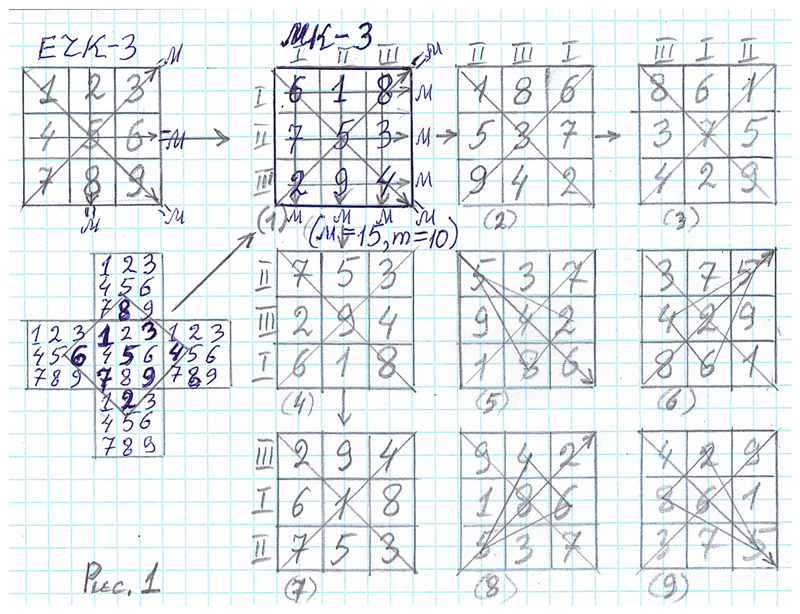 ЕЧК-3
1 2 3 м
4 5 6 =м
7 8 9
м м
МК-3
I II III
I 6 1 8 м
II 7 5 3 м
III 2 9 4 м
(1) м м м м
(м=15, m=10)
II III I
1 8 6
5 3 7
9 4 2
(2)
III I II
8 6 1
3 7 5
4 2 9
(3)
1 2 3
4 5 6
7 8 9
1 2 3 1 2 3 1 2 3
4 5 6 4 5 6 4 5 6
7 8 9 7 8 9 7 8 9
1 2 3
4 5 6
7 8 9
II 7 5 3
III 2 9 4
I 6 1 8
(4)
5 3 7
9 4 2
1 8 6
(5)
3 7 5
4 2 9
8 6 1
(6)
III 2 9 4
I 6 1 8
II 7 5 3
(7)
9 4 2
1 8 6
5 3 7
(8)
4 2 9
8 6 1
3 7 5
(9)
Рис. 1